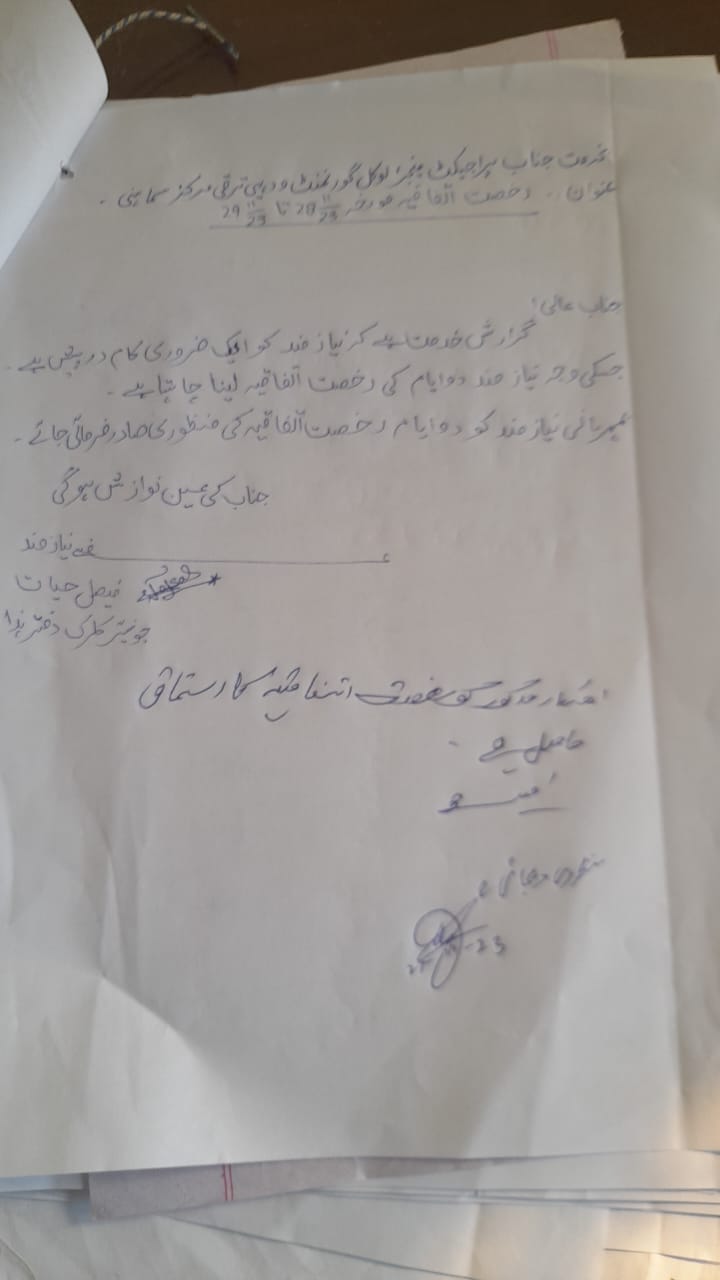 بخدمت جناب پراجیکٹ منیجر لوکل گورنمنٹ و دیہی ترقی مرکز سماہنی ۔
عنوان :۔ رخصت اتفاقیہ مورخہ 28 11/23 تا 29 11/23
جناب عالی!
گزارش خدمت ہے کہ نیاز مند کو ایک ضروری کام درپیش ہے ۔
جسکی وجہ نیاز مند دو ایام کی رخصت اتفاقیہ لینا چاہتا ہے ۔
مہربانی نیاز مند کو دو ایام رخصت اتفاقیہ کی منظوری صادر فرمائی جائے ۔
جناب کی عین نوازش ہوگی
نیاز مند
فیصل حیات
جونیئر کلرک دفتر ہذا
مذکور کو رخصت اتفاقیہ کا استحقاق
حاصل ہے ۔
منظوری دی جاتی ہے